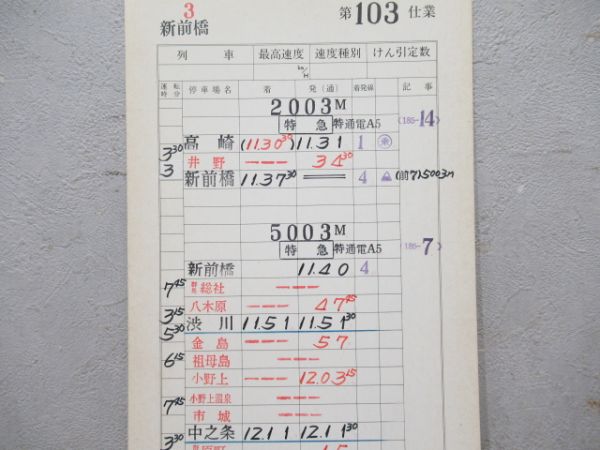 3
新前橋
第103仕業
列車 最高速度 速度種別 けん引定数
km/H
運転時分 停車場名 着 発(通) 着発線 記事
2003M
特急 特通電A5 (185-14)
高崎 (11.30 30) 11.31 1
3 30
井野 --- 34 30
3
新前橋 11.37 30 == 4 (前7)5003M
5003M
特急 特通電A5 (185-7)
新前橋 11.40 4
群馬総社 ---
7 45
八木原 --- 47 45
3 15
渋川 11.51 11.51 30
5 30
金島 --- 57
祖母島 ---
6 15
小野上 --- 12.03 15
小野上温泉 ---
7 45
市城 ---
中之条 12.11 12.11 30
3 30